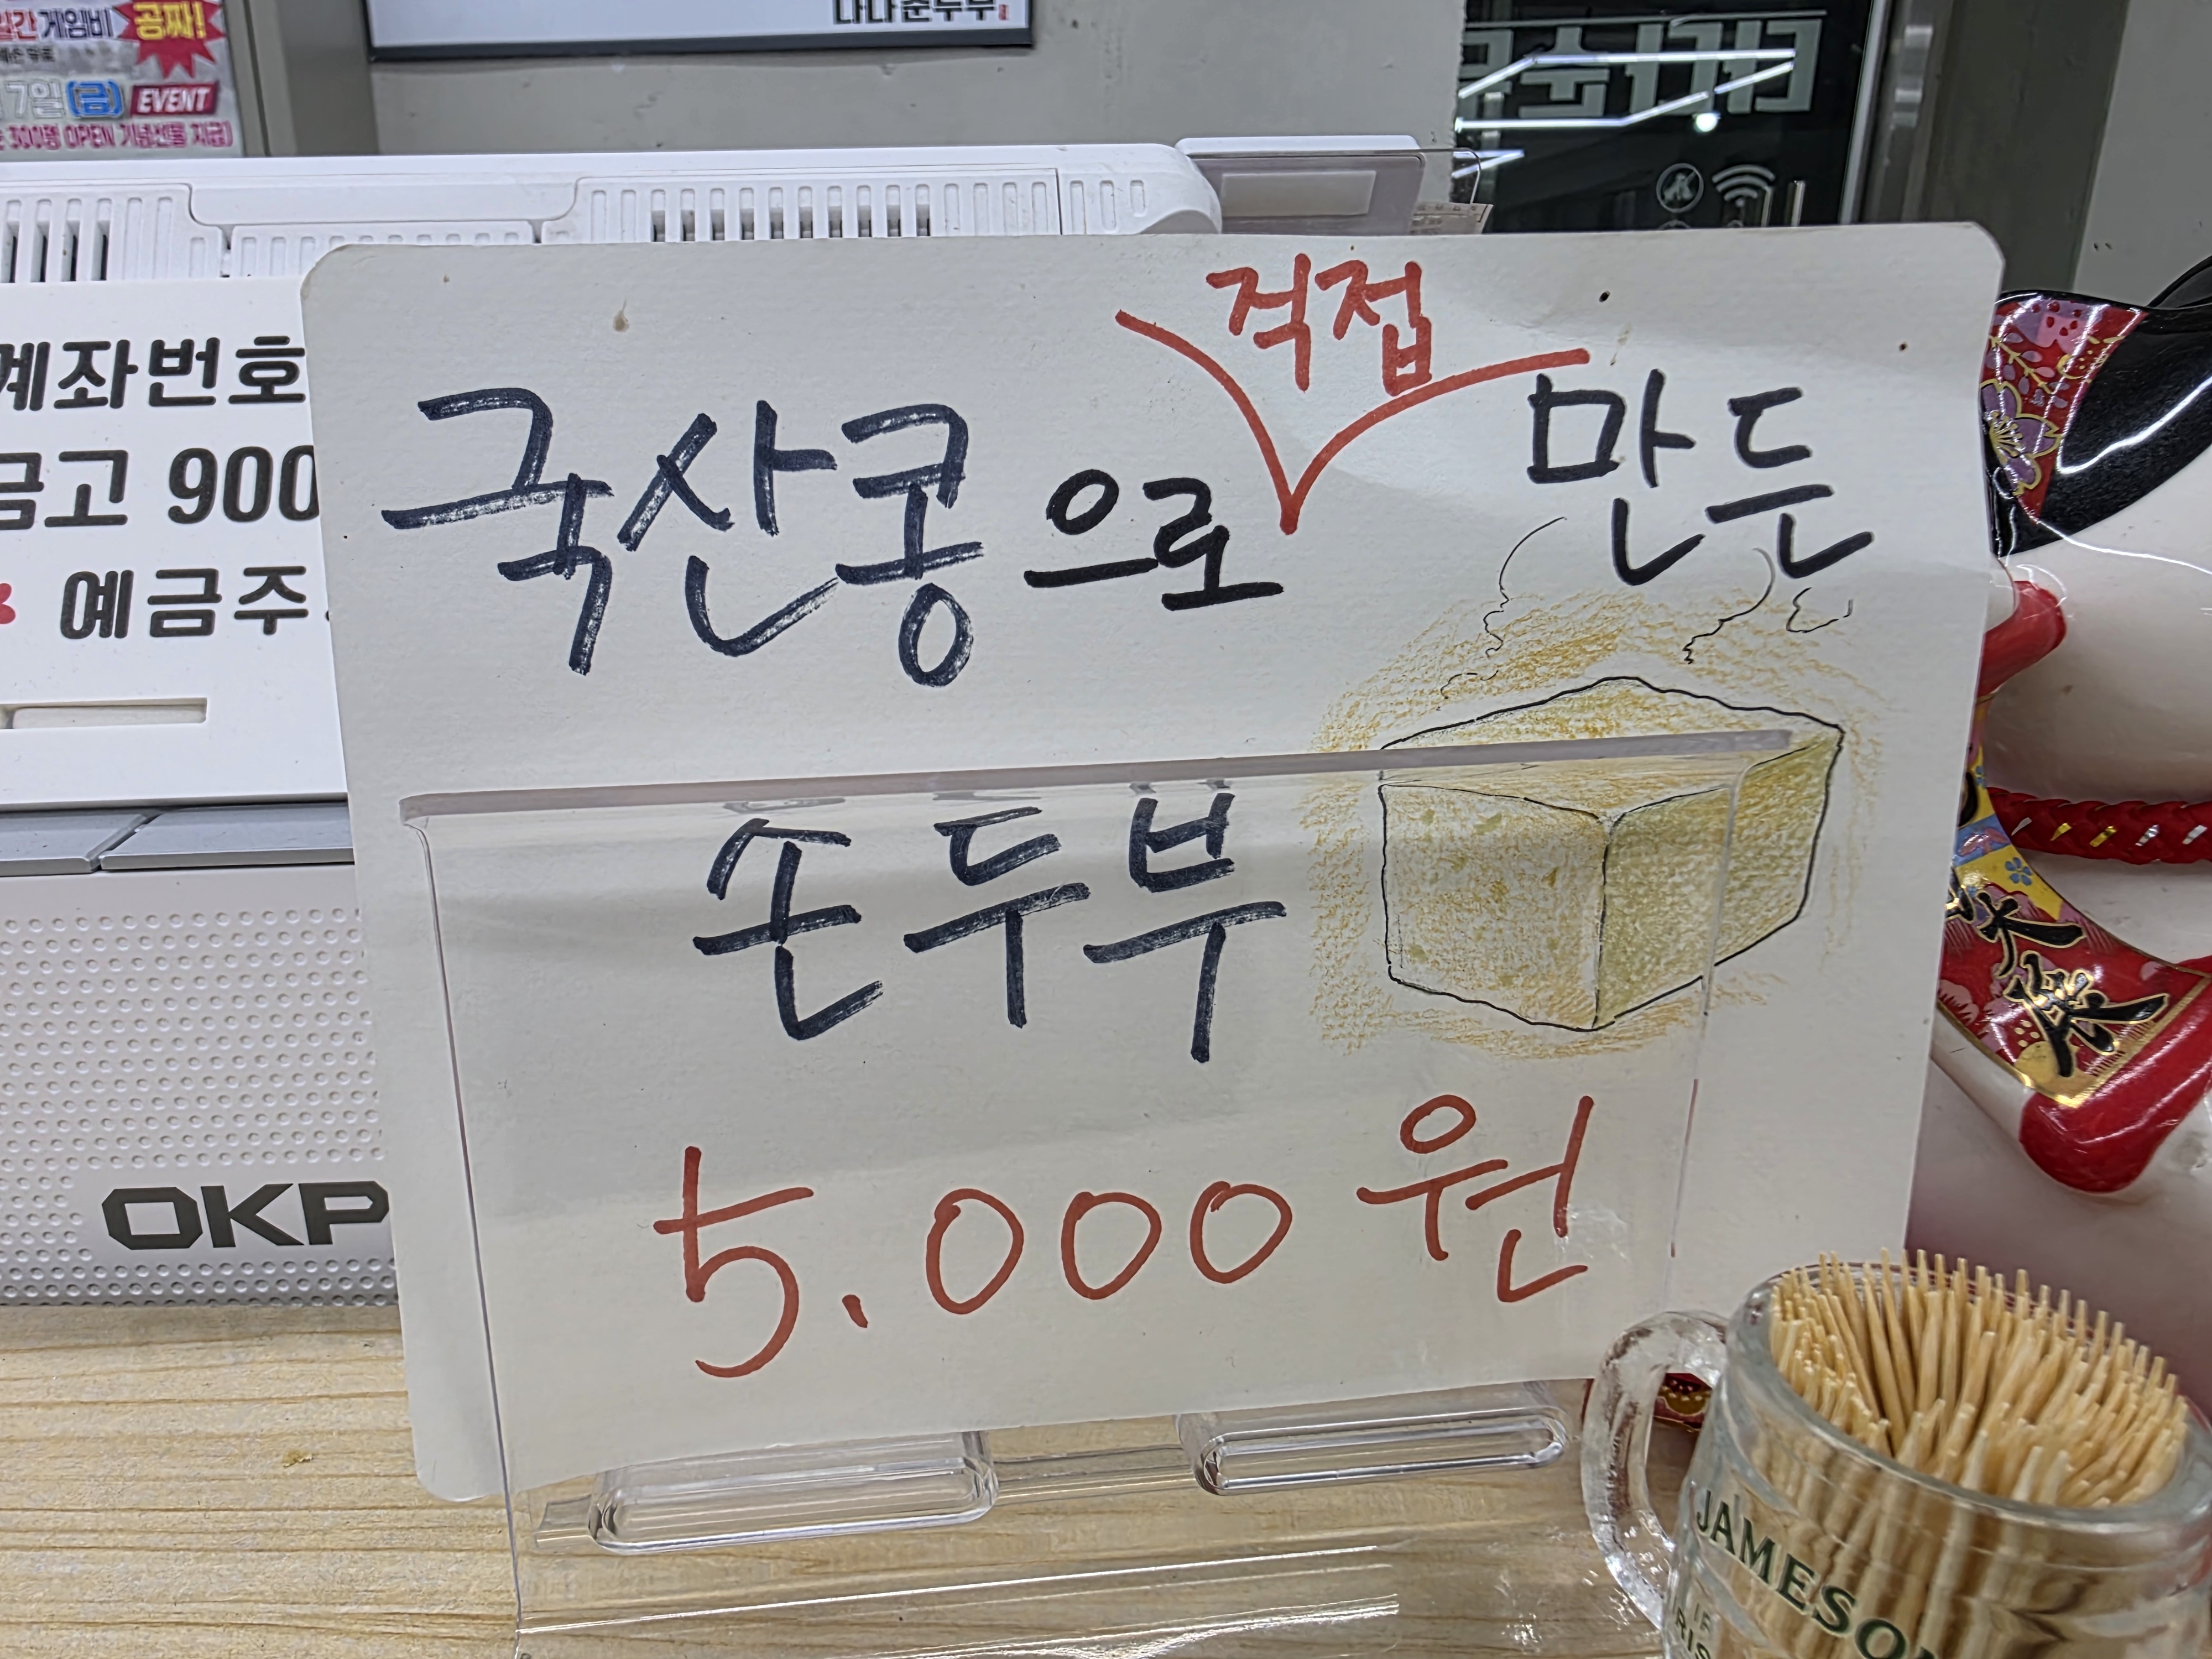 게임비 공짜!
7일(금) EVENT
300명 OPEN 기념선물 지급)
나나순두부
계좌번호
금고 900
예금주
국산콩으로 직접 만든
손두부
5.000원
OKP
JAMESON